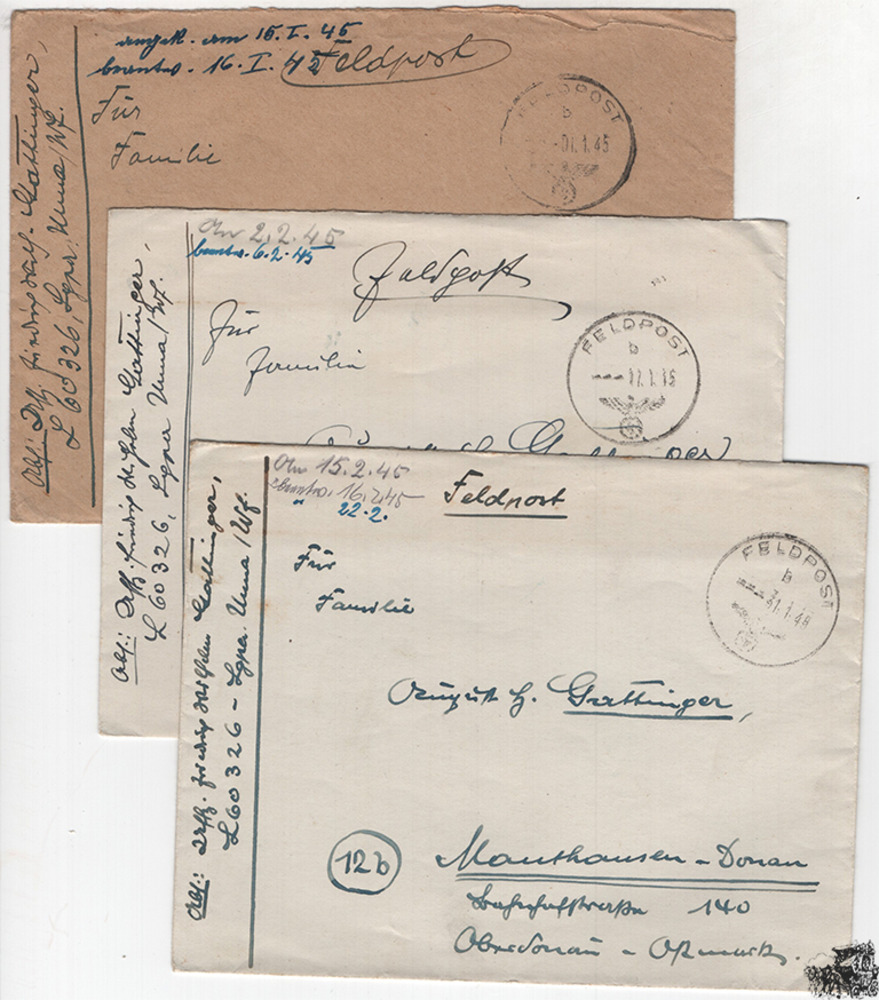 angek. am 15. I. 45
beantw. 16. I. 45
Feldpost
Für
Familie
Abs.: Gattinger,
L 60326, Lgpa. Unna/Wf.
FELDPOST
b
-01.1.45
An 2.2.45
beantw. 6.2.45
Feldpost
Für
Familie
Abs.: Gattinger,
L 60326, Lgpa Unna/Wf.
FELDPOST
b
17.1.45
An 15.2.45
beantw. 16.2.45
" 22.2.
Feldpost
Für
Familie
August H. Gattinger,
12b
Mauthausen - Donau
Bahnhofstraße 140
Oberdonau - Ostmark.
Abs.: Gattinger,
L 60326 - Lgpa. Unna/Wf.
FELDPOST
b
31.1.45